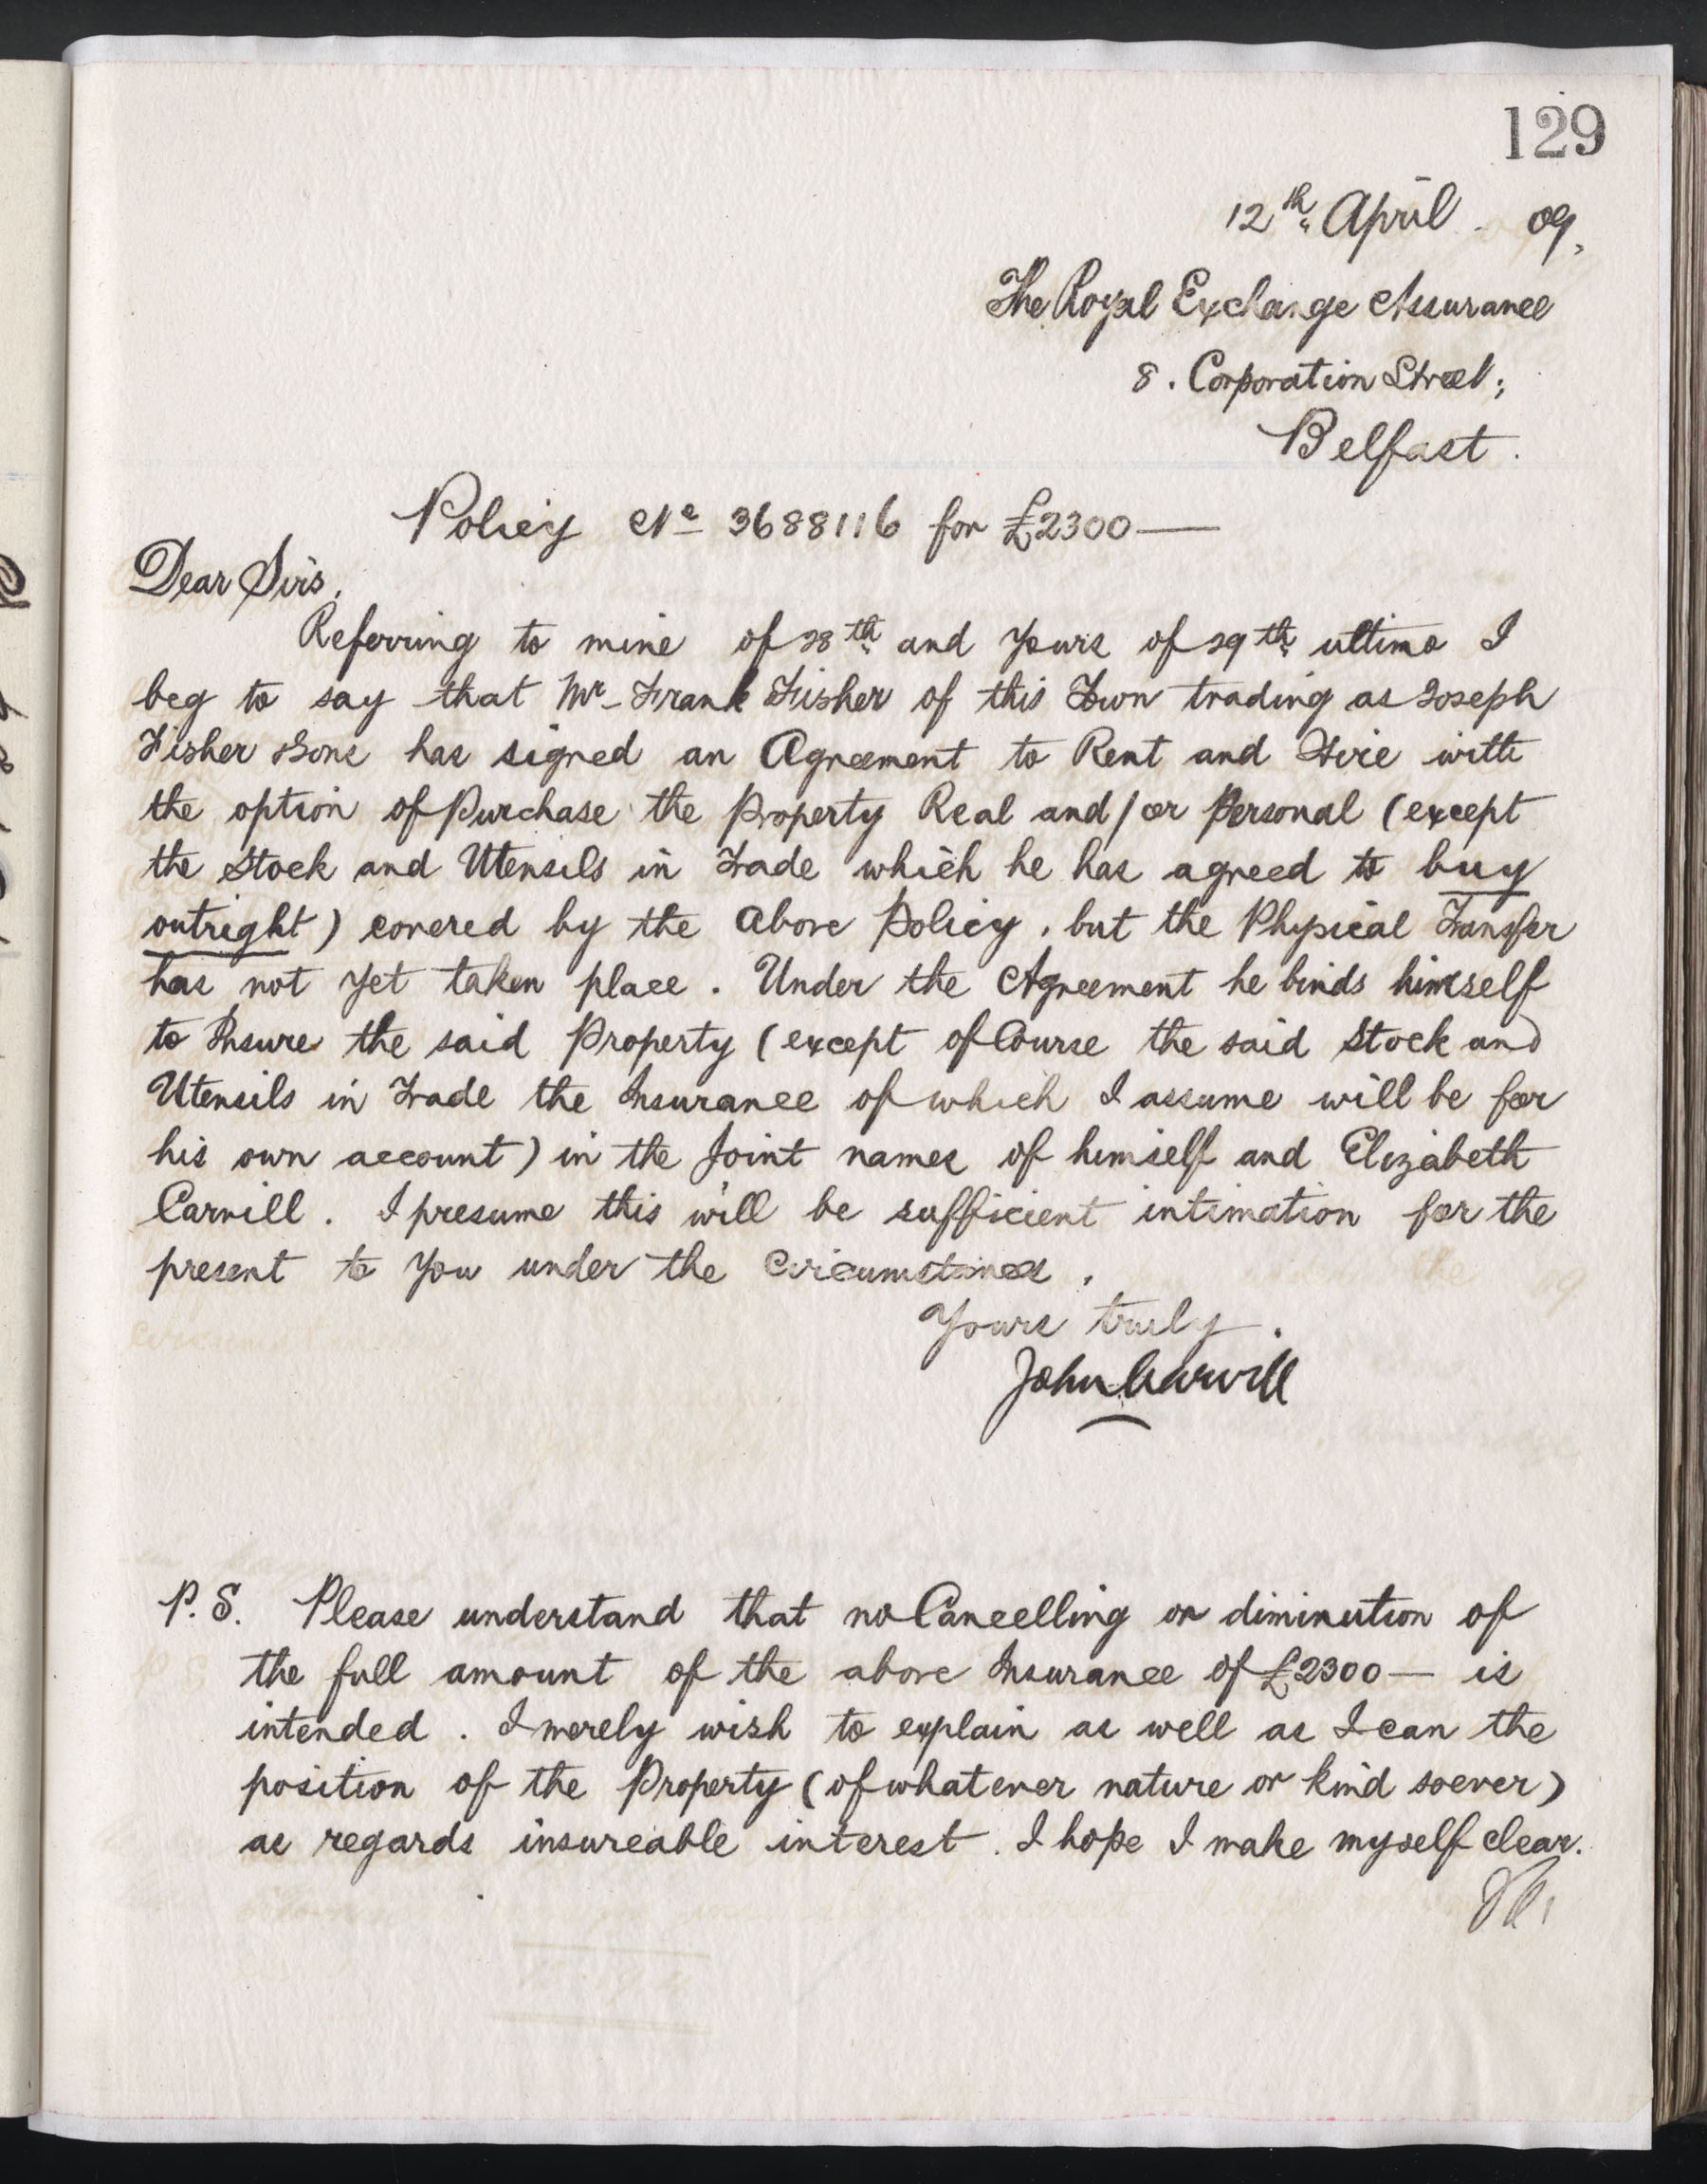 129
12th April 09.
The Royal Exchange Assurance
8. Corporation Street,
Belfast.
Policy No 3688116 for £2300—
Dear Sirs,
Referring to mine of 28th and yours of 29th ultimo I
beg to say that Mr Frank Fisher of this Town trading as Joseph
Fisher & Sons has signed an Agreement to Rent and Hire with
the option of Purchase the Property Real and/or Personal (except
the Stock and Utensils in Trade which he has agreed to buy
outright) covered by the above Policy, but the Physical Transfer
has not yet taken place. Under the Agreement he binds himself
to Insure the said Property (except of Course the said Stock and
Utensils in Trade the Insurance of which I assume will be for
his own account) in the Joint names of himself and Elizabeth
Carvill. I presume this will be sufficient intimation for the
present to you under the Circumstances.
Yours truly.
John Carvill
P.S. Please understand that no Cancelling or diminution of
the full amount of the above Insurance of £2300— is
intended. I merely wish to explain as well as I can the
position of the Property (of whatever nature or kind soever)
as regards insureable interest. I hope I make myself clear.